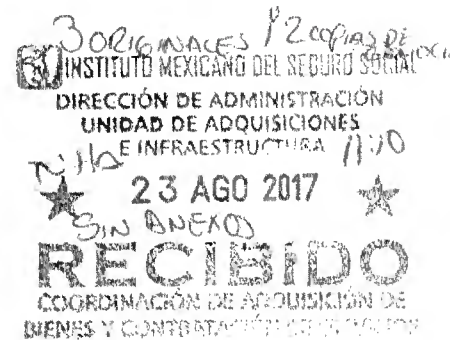 3 ORIGINALES Y 2 copias DE
INSTITUTO MEXICANO DEL SEGURO SOCIAL
DIRECCIÓN DE ADMINISTRACIÓN
UNIDAD DE ADQUISICIONES
E INFRAESTRUCTURA
23 AGO 2017
SIN ANEXOS
RECIBIDO
COORDINACIÓN DE ADQUISICIÓN DE
BIENES Y CONTRATACIÓN DE